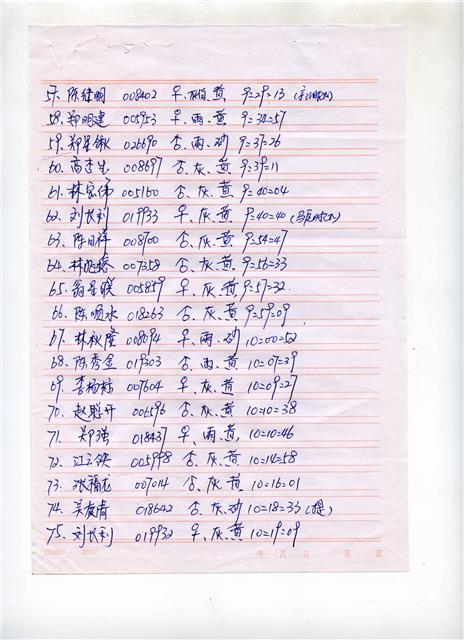 57. 陈继明 008402 早、灰、黄 9=29=13
58. 郑明建 005953 早、雨、黄 9=32=57
59. 郑星 026690 杏、雨、砂 9=37=26
60. 高李生 008697 杏、灰、黄 9=39=11
61. 林宏伟 005160 杏、灰、黄 9=40=04
62. 刘长利 019933 早、灰、黄 9=40=40
63. 陈日祥 008700 杏、灰、黄 9=54=47
64. 林 007258 杏、灰、黄 9=56=33
65. 翁星联 005859 早、灰、黄 9=57=32
66. 陈顺水 018263 杏、灰、黄 9=59=09
67. 林秋隆 008094 早、雨、砂 10=00=52
68. 陈秀金 019303 杏、雨、黄 10=07=39
69. 李杨林 007604 早、灰、黄 10=09=27
70. 赵联开 006596 杏、灰、黄 10=10=38
71. 郑强 018437 早、雨、黄 10=10=46
72. 江云铁 005998 杏、灰、黄 10=14=58
73. 张福龙 007014 杏、灰、黄 10=16=01
74. 吴友清 018642 杏、灰、砂 10=18=33 (提)
75. 刘长利 019932 早、灰、黄 10=19=09
年 月 日 第 页